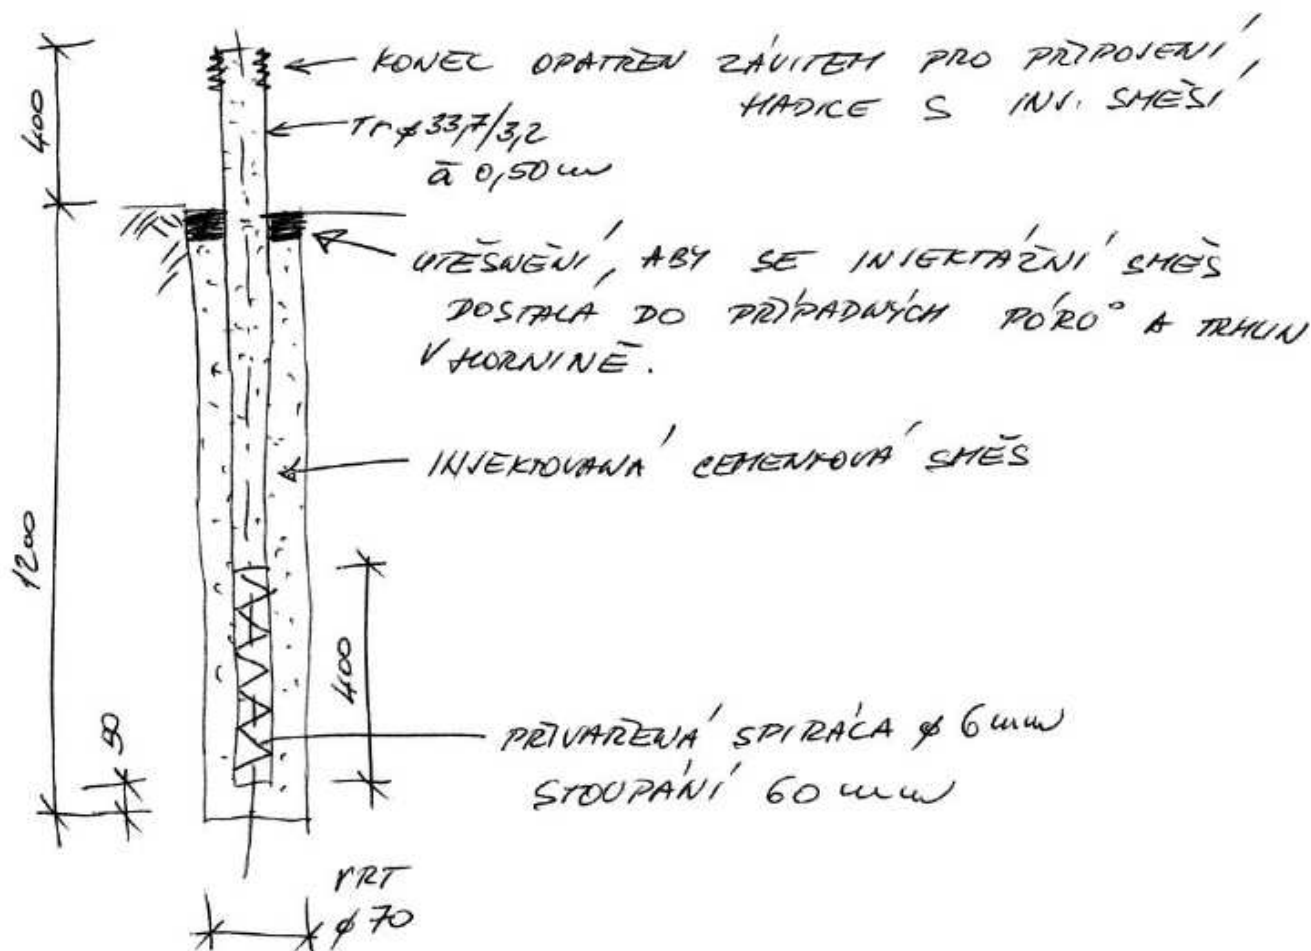 KONEC OPATŘEN ZÁVITEM PRO PŘIPOJENÍ
HADICE S INJ. SMĚSÍ
400
Tr ϕ 33,7/3,2
á 0,50 m
UTĚSNĚNÍ, ABY SE INJEKTÁŽNÍ SMĚS
DOSTALA DO PŘÍPADNÝCH PÓRŮ A TRHLIN
V HORNINĚ.
INJEKTOVANÁ CEMENTOVÁ SMĚS
1200
400
50
PŘIVAŘENÁ SPIRÁLA ϕ 6 mm
STOUPÁNÍ 60 mm
VRT
ϕ 70